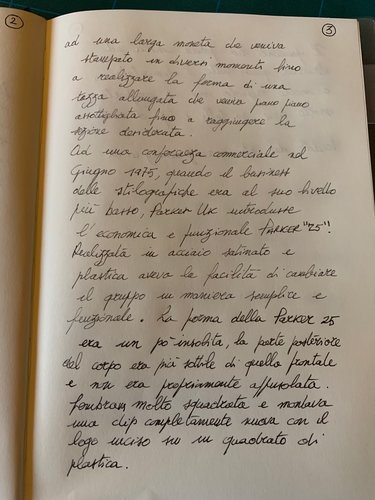 2
3
ad una larga moneta che veniva
stampato in diversi momenti fino
a realizzare la forma di una
tazza allungata che veniva piano piano
assottigliata fino a raggiungere la
sezione desiderata.
Ad una conferenza commerciale nel
Giugno 1975, quando il business
delle stilografiche era al suo livello
più basso, Parker UK introdusse
l'economica e funzionale PARKER "25"!
Realizzata in acciaio satinato e
plastica aveva la facilità di cambiare
il gruppo in maniera semplice e
funzionale. La forma della Parker 25
era un po' insolita, la parte posteriore
del corpo era più sottile di quella frontale
e non era propriamente affusolata.
Sembrava molto squadrata e montava
una clip completamente nuova con il
logo inciso su un quadrato di
plastica.